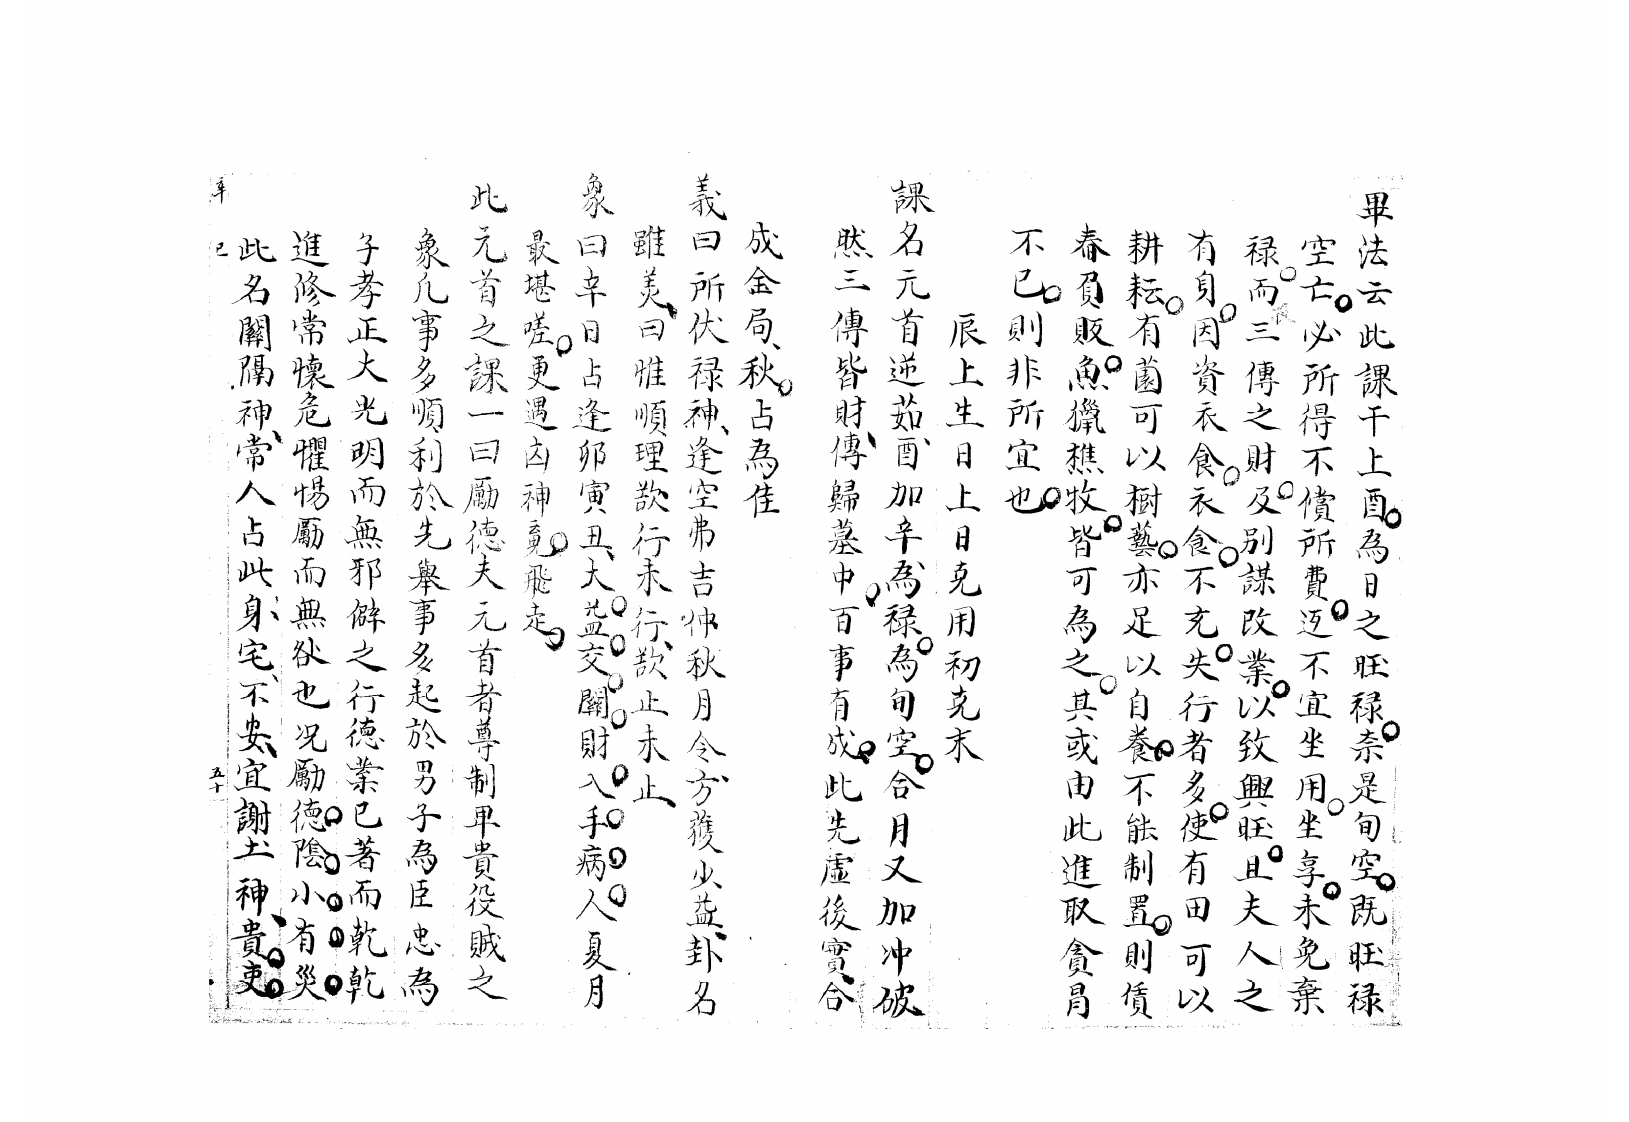 畢法云此課干上酉為日之旺禄奈是旬空既旺禄
空亡必所得不償所費迓不宜坐用坐享未免棄
禄而三傳之財及别謀改業以致興旺且夫人之
有身因資衣食衣食不充失行者多使有田可以
耕耘有園可以樹藝亦足以自養不能制置則賃
舂負販魚獵樵牧皆可為之其或由此進取貪冐
不已則非所宜也
辰上生日上日克用初克末
課名元首逆茹酉加辛為禄為旬空合月又加冲破
然三傳皆財傳歸墓中百事有成此先虚後實合
成金局秋占為佳
義曰所伏禄神逢空弗吉仲秋月令方獲少益卦名
雖美曰惟順理欲行未行欲止未止
象曰辛日占逢卯寅丑大益交關財入手病人夏月
最堪嗟更遇凶神竟飛走
此元首之課一曰勵德夫元首者尊制卑貴役賊之
象凡事多順利於先舉事多起於男子為臣忠為
子孝正大光明而無邪僻之行德業已著而乾乾
進修常懷危懼惕勵而無咎也况勵德陰小有災
此名關隔神常人占此身宅不安宜謝土神貴吏
辛巳 五十